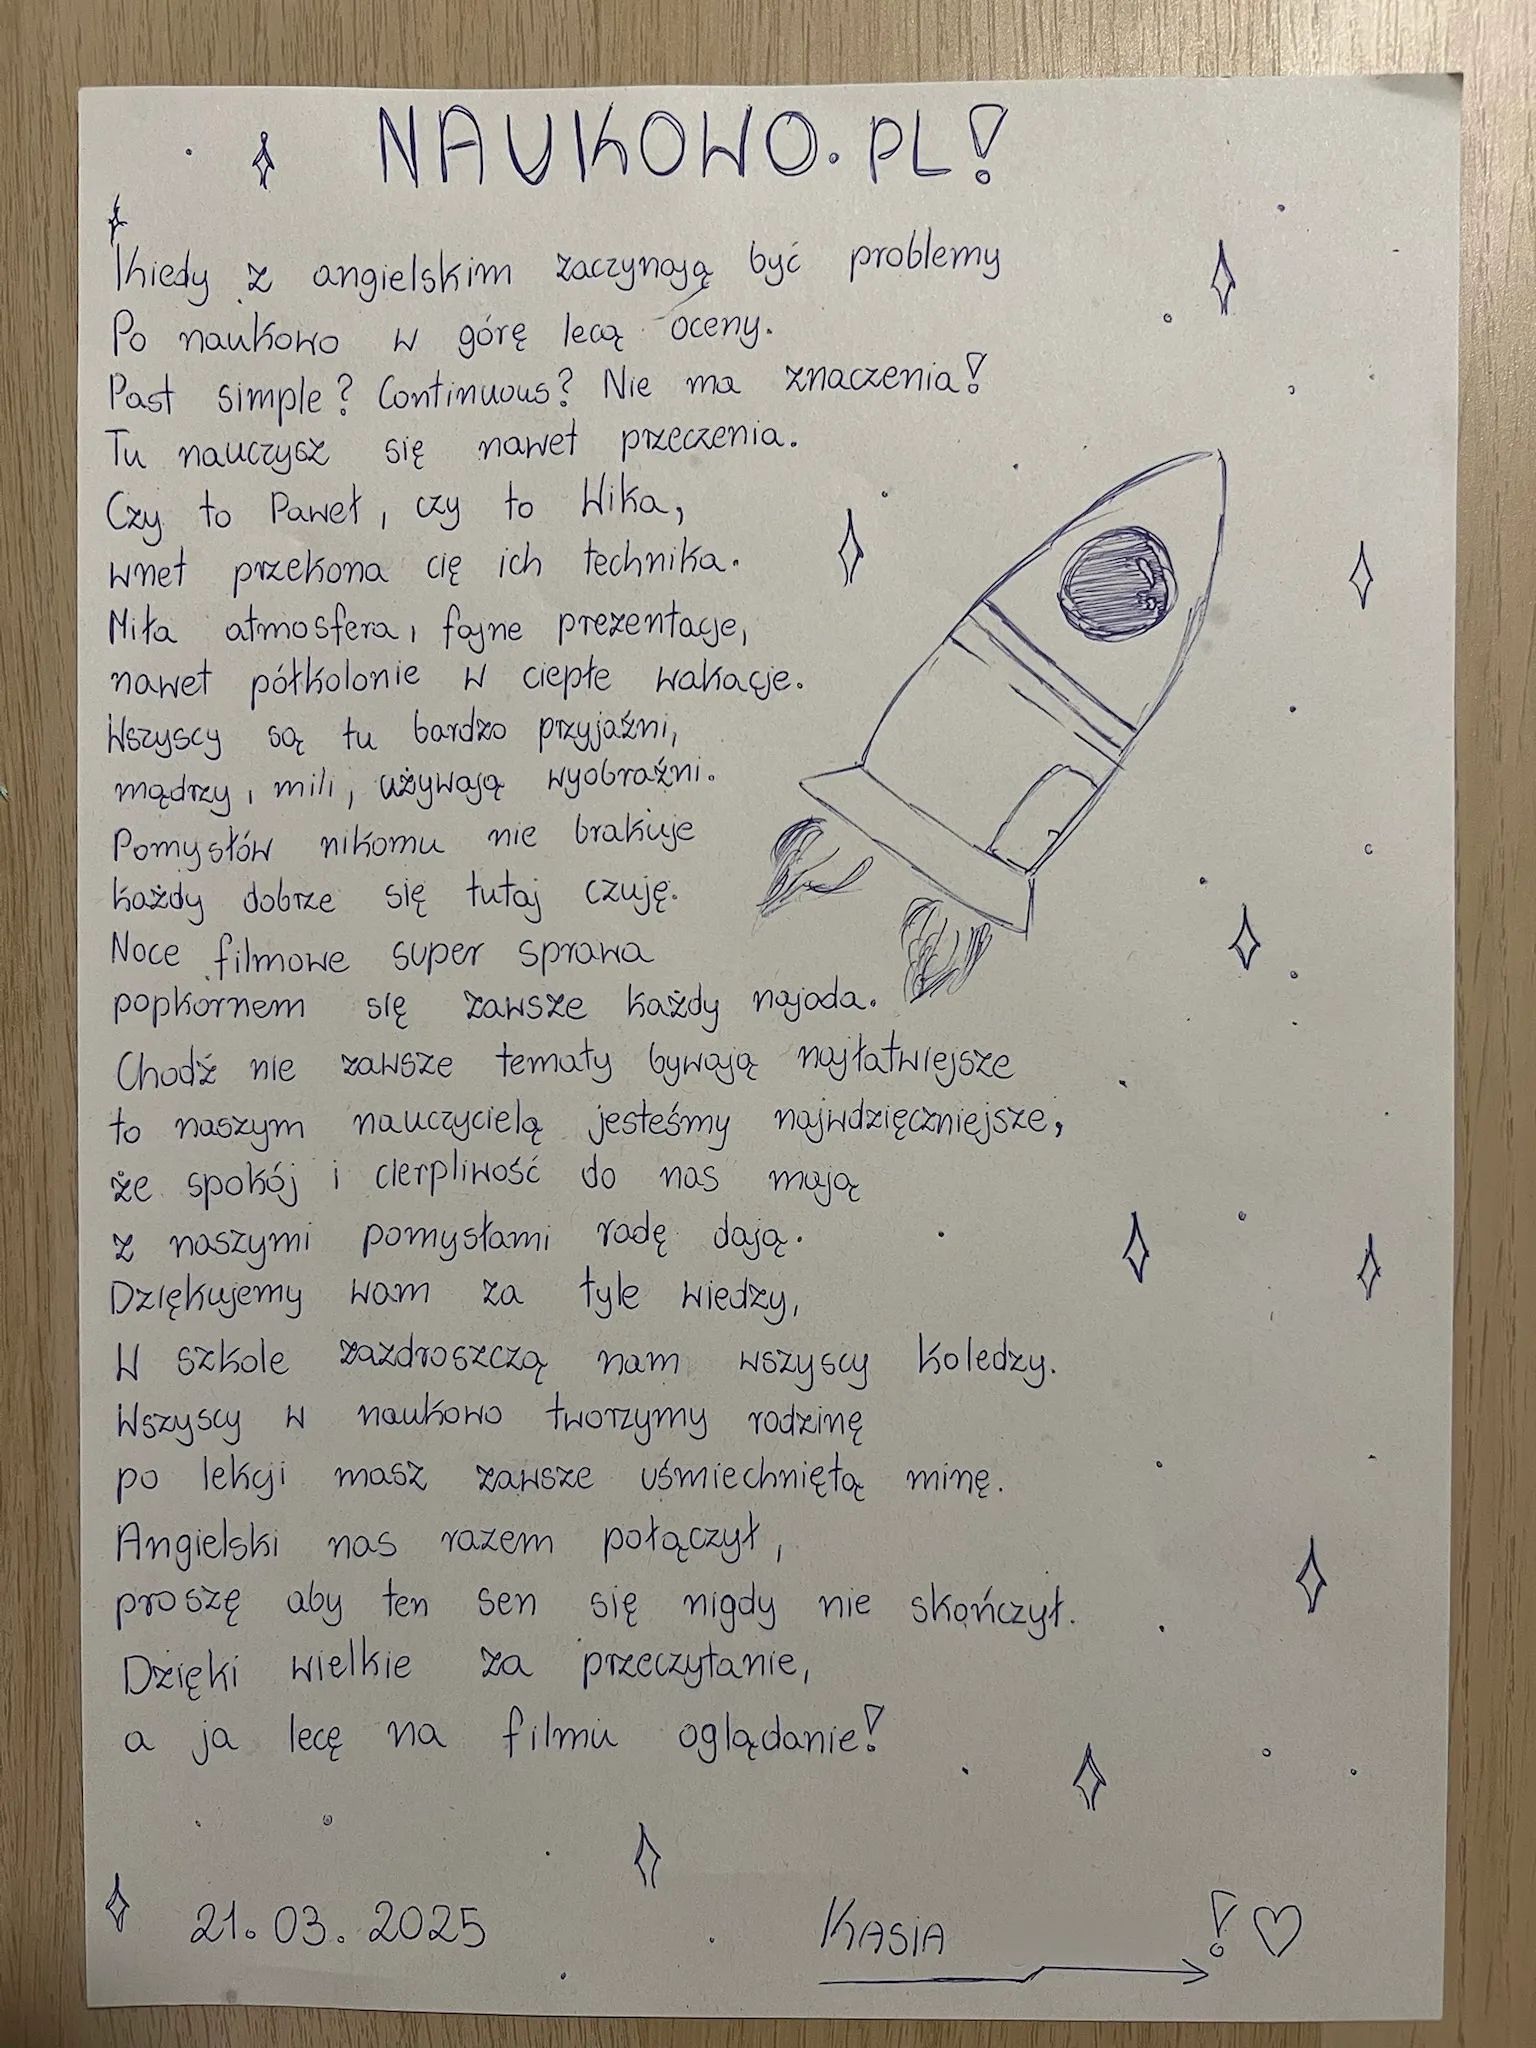 NAUKOWO.PL!
Kiedy z angielskim zaczynają być problemy
Po naukowo w górę lecą oceny.
Past simple? Continuous? Nie ma znaczenia!
Tu nauczysz się nawet przeczenia.
Czy to Paweł, czy to Wika,
wnet przekona cię ich technika.
Miła atmosfera, fajne prezentacje,
nawet półkolonie w ciepłe wakacje.
Wszyscy są tu bardzo przyjaźni,
mądrzy, mili, używają wyobraźni.
Pomysłów nikomu nie brakuje
każdy dobrze się tutaj czuję.
Noce filmowe super sprawa
popkornem się zawsze każdy najada.
Chodź nie zawsze tematy bywają najłatwiejsze
to naszym nauczycielą jesteśmy najwdzięczniejsze,
że spokój i cierpliwość do nas mają
z naszymi pomysłami radę dają.
Dziękujemy wam za tyle wiedzy,
W szkole zazdroszczą nam wszyscy koledzy.
Wszyscy w naukowo tworzymy rodzinę
po lekcji masz zawsze uśmiechniętą minę.
Angielski nas razem połączył,
proszę aby ten sen się nigdy nie skończył.
Dzięki wielkie za przeczytanie,
a ja lecę na filmu oglądanie!
21.03.2025 KASIA ! ♡